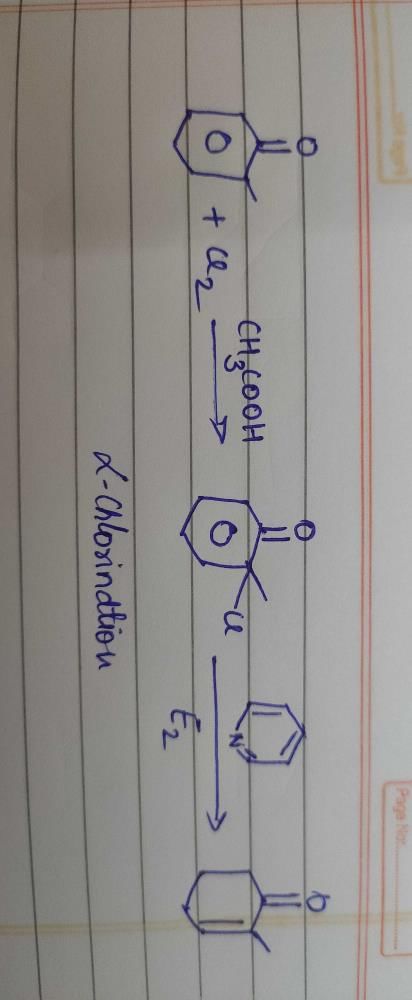 O
O + Cl2 CH3COOH
O
O Cl
N
E2
O
α-Chlorindtion
Page No.